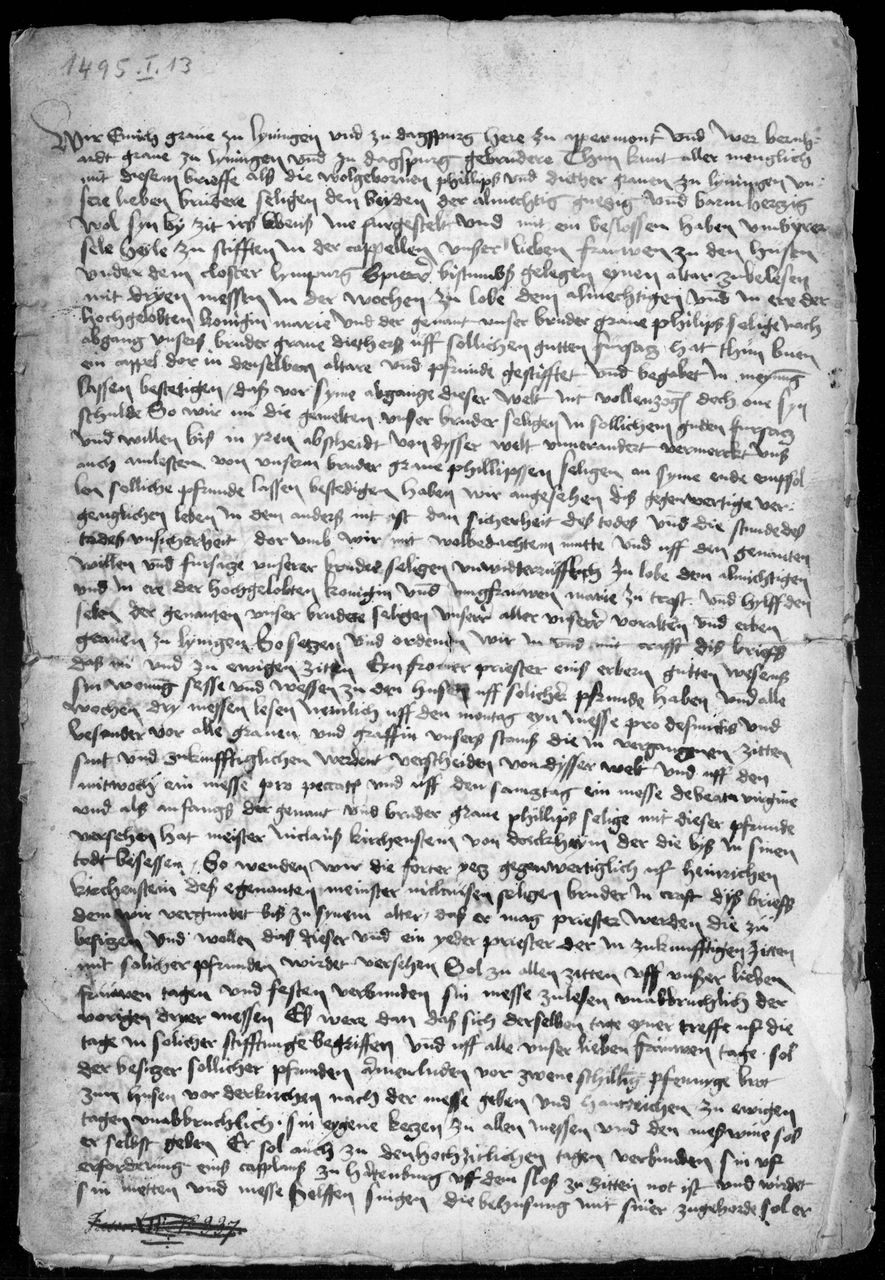 1495.I.13
Wir Emich graue zu lyningen vnd zu dagspurg here zu appermont vnd wir bernh-
ardt graue zu lyningen vnd zu dagspurg gebrudere Thun kunt aller menglich
mit diesem brieffe als die wolgebornen phillips vnd diether grauen zu lyningen vn-
sere lieben brudere seligen den beyden der almechtig gnedig vnd barmherczig
wol syn by zit irs lebens ine furgestelt vnd mit ein beslossen haben vmb yrer
sele heyle zu stifften in der cappellen vnser lieben frauwen zu den husen
vnder dem closter lympurg Spierer bistumbs gelegen eynen altar zubelesen
mit dryen messen in der wochen zu lobe dem almechtigen vnd in ere der
hochgelobten konigin marie vnd der genant vnser bruder graue philips selige nach
abgang vnsers bruder graue diethers vff sollichen gutten fursacz hat thun buen
ein cappel dor in denselben altare vnd pfrunde gestifftet vnd begabet in meynung
lassen bestetigen / das vor syme abgange dieser welt nit vollenzogen doch one syn
schulde So wir nu die gemelten vnser bruder seligen in sollichem guden fursacz
vnd willen bis in yren abscheidt von dysser welt vnuerandert vermerckt vns
auch amlesten von vnserm bruder graue phillipssen seligen an syme ende entpfol
len solliche pfrunde lassen bestedigen haben wir angesehen dis gegenwertige ver-
genglichen leben in dem anders nit ist dan sicherheit des todes vnd die stunde des
todes vnsicherheit dor vmb wir mit wolbedachtem mutte vnd vff den genanten
willen vnd fursacze vnserer bruder seligen vnwidterrufflich zu lobe dem almechtigen
vnd in ere der hochgelobten konigin vnd iungfrauwen marie zu trost vnd hylff den
selen der genanten vnser brudere seligen vnserer aller vnserer voraltern vnd erben
grauen zu lyningen. So setzen vnd ordenen wir in vnd mit crafft dis brieffs
das nu vnd zu ewigen zitten Eyn fromer priester eins erbern gutten wesens
sin wonung sesse vnd wessen zu den husen vff solicher pfrunde haben vnd alle
wochen dry messen lesen nemlich vff den montag eyn messe pro defunctis vnd
besunder vor alle grauen vnd graffin vnsers stams die in vergangenen zitten
sint vnd zukunfftiglichen werdent verscheiden von dysser welt vnd vff den
mitwoch ein messe pro peccatis vnd vff den samztag ein messe de beata virgine
vnd als anfangs der genant vnd bruder graue phillips selige mit dieser pfrunde
versehen hat meister niclaus kirchenstein von dorckheim der die bys in sinen
todt besessen / So wenden wir die forter yetz gegenwertiglich vff heinrichen
kirchenstein des egenanten meinster niclausen seligen bruder in craft dys briefs
dem wir vergundet bis zu synem alter / das er mag priester werden die zu
besizen vnd wollen das dieser vnd ein yeder priester der in zukunfftigen zitten
mit solicher pfrunden wirdet versehen Sol zu allen zitten vff vnser lieben
frauwen tagen vnd festen verbunden sin messe zulesen vnabbruchlich der
vorigen dryer messen Es were dan das sich derselben tage eyner treffe vf die
tage in solicher stifftunge begriffen vnd vff alle vnser lieben frauwen tage sol
der besizer sollicher pfrunden armenluden vor zwene schilling pfennyge brot
zum husen vor der kirchen nach der messe geben vnd hantreichen zu ewigen
tagen vnabbruchlich. sin eygene kerzen zu allen messen vnd den meswine sol
er selbst geben Er sol auch zu den hochzitlichen tagen verbunden sin vf
erforderung eins capplans zu hartenburg vff dem slos zu zitten not ist vnd wirdet
sin metten vnd messe helffen singen die behusung mit siner zugehorde sol er